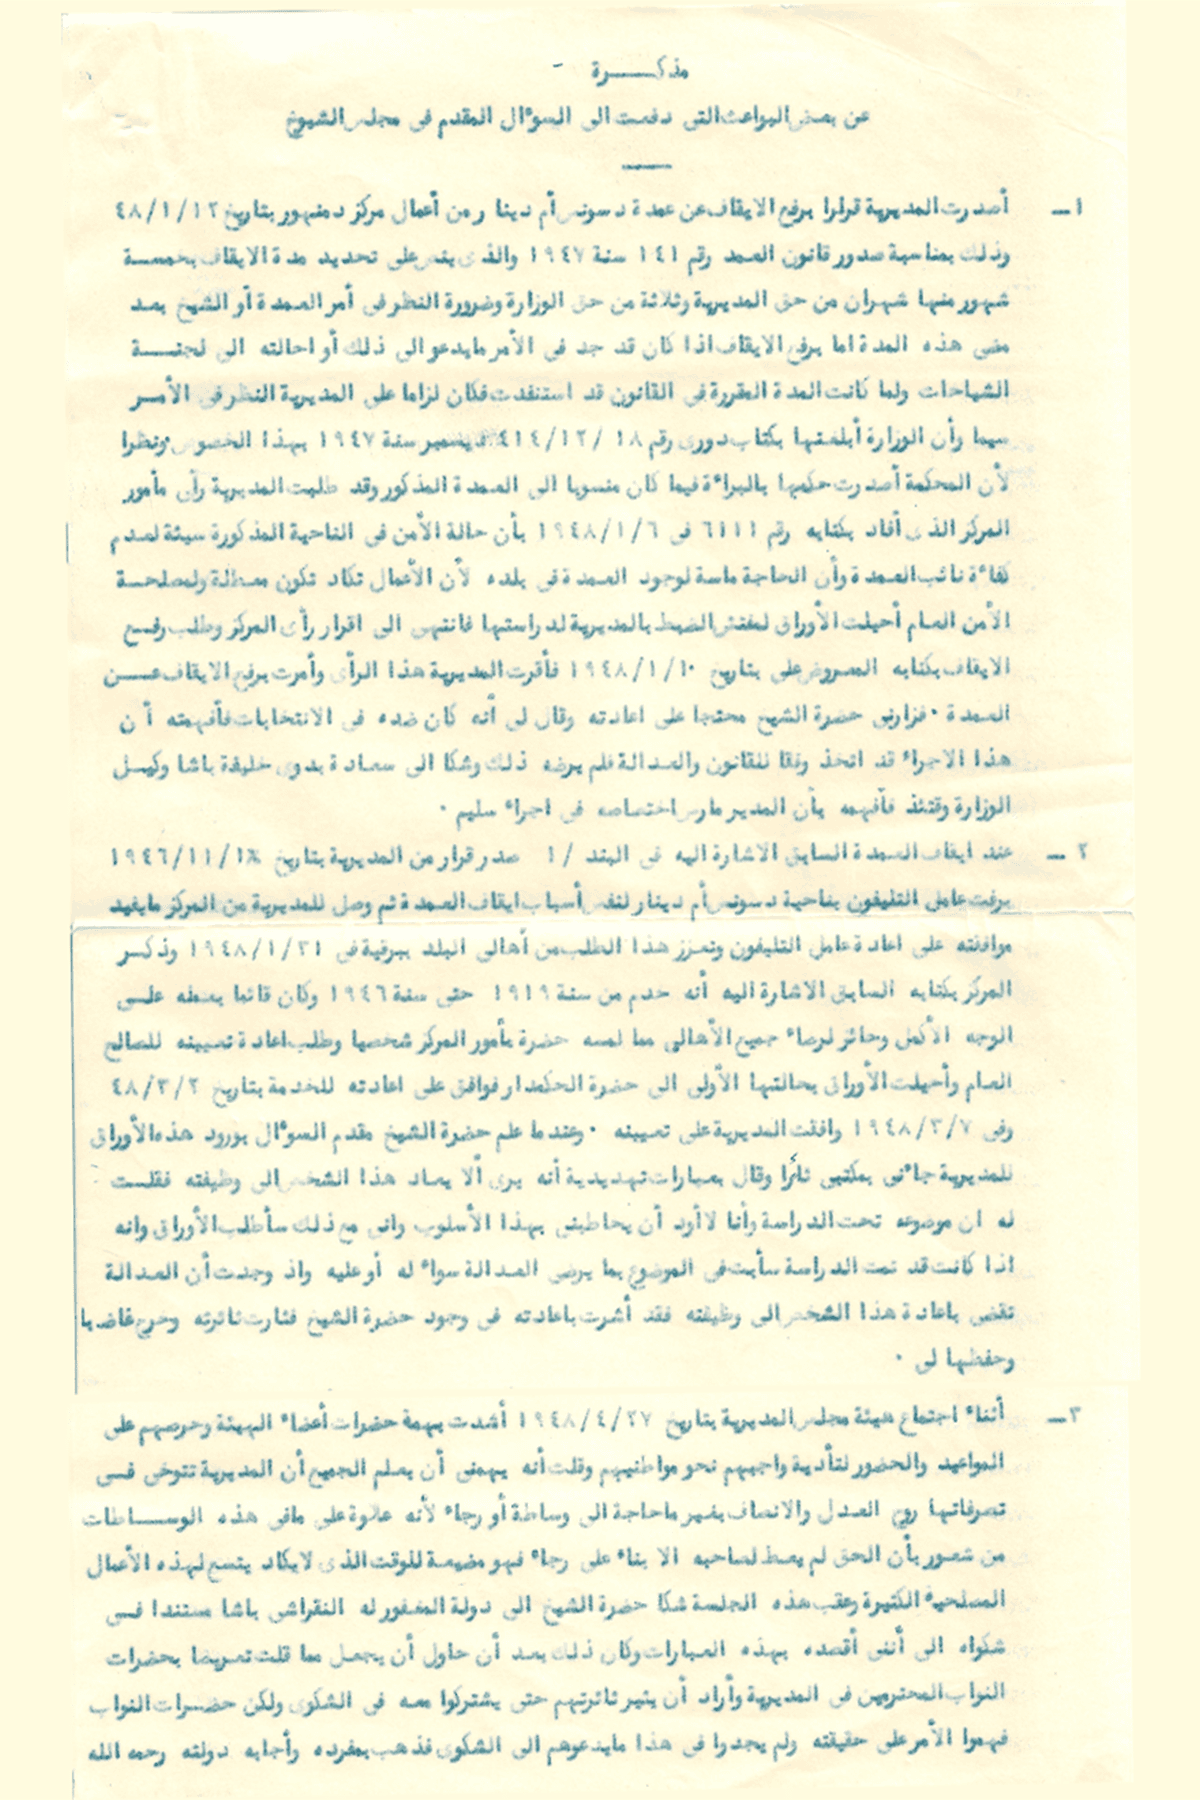 مذكـــــرة -
عن بعض البواعث التى دفعت الى السوءال المقدم فى مجلس الشيوخ
١ــ أصدرت المديرية قرارا برفع الايقاف عن عمدة دسونس أم دينار من أعمال مركز دمنهور بتاريخ ٤٨/١/١٢
وذلك بمناسبة صدور قانون العمد رقم ١٤١ سنة ١٩٤٧ والذى ينص على تحديد مدة الايقاف بخمســة
شهور منها شهران من حق المديرية وثلاثة من حق الوزارة وضرورة النظر فى أمر العمدة أو الشيخ بعد
مضى هذه المدة اما برفع الايقاف اذا كان قد جد فى الأمر مايدعو الى ذلك أو احالته الى لجنــــة
الشياخات ولما كانت المدة المقررة فى القانون قد استنفدت فكان لزاما على المديرية النظر فى الأمــر
سيما وأن الوزارة أبلغتها بكتاب دورى رقم ١٨ /٤١٤/١٢ ديسمبر سنة ١٩٤٧ بهذا الخصوص ونظرا
لأن المحكمة أصدرت حكمها بالبراءة فيما كان منسوبا الى العمدة المذكور وقد طلبت المديرية رأى مأمور
المركز الذى أفاد بكتابه رقم ٦١١١ فى ١٩٤٨/١/٦ بأن حالة الأمن فى الناحية المذكورة سيئة لعدم
كفاءة نائب العمدة وأن الحاجة ماسة لوجود العمدة فى بلده لأن الأعمال تكاد تكون معطلة ولمصلحــة
الأمن العام أحيلت الأوراق لمفتش الضبط بالمديرية لدراستها فانتهى الى اقرار رأى المركز وطلب رفــع
الايقاف بكتابه المعروض على بتاريخ ١٩٤٨/١/١٠ فأقرت المديرية هذا الرأى وأمرت برفع الايقاف عـــن
العمدة ٠ فزارنى حضرة الشيخ محتجا على اعادته وقال لى أنه كان ضده فى الانتخابات فأفهمته أ ن
هذا الاجراء قد اتخذ وفقا للقانون والعدالة فلم يرضه ذلك وشكا الى سعادة بدوى خليفة باشا وكيــل
الوزارة وقتئذ فأفهمه بأن المدير مارس اختصاصه فى اجراء سليم ٠
٢ ــ عند ايقاف العمدة السابق الاشارة اليه فى البند /١ صدر قرار من المديرية بتاريخ ١٩٤٦/١١/
برفت عامل التليفون بناحية دسونس أم دينار لنفس أسباب ايقاف العمدة ثم وصل للمديرية من المركز مايفيد
موافقته على اعادة عامل التليفون وتعزز هذا الطلب من أهالى البلد ببرقية فى ١٩٤٨/١/٢١ وذكــر
المركز بكتابه السابق الاشارة اليه أنه خدم من سنة ١٩١٩ حتى سنة ١٩٤٦ وكان قائما بعمله علــى
الوجه الأكمل وحائز لرضاء جميع الأهالى مما لمسه حضرة مأمور المركز شخصيا وطلب اعادة تعيينه للصالح
العام وأحيلت الأوراق بحالتها الأولى الى حضرة الحكمدار فوافق على اعادته للخدمة بتاريخ ٤٨/٣/٢
وفى ١٩٤٨/٣/٧ وافقت المديرية على تعيينه ٠ وعندما علم حضرة الشيخ مقدم السوءال بورود هذه الأوراق
للمديرية جاءنى بمكتبى ثائرا وقال بعبارات تهديدية أنه يرى ألا يعاد هذا الشخص الى وظيفته فقلــت
له ان موضوعه تحت الدراسة وأنا لا أود أن يخاطبنى بهذا الأسلوب وانى مع ذلك سأطلب الأوراق وانه
اذا كانت قد تمت الدراسة سأبت فى الموضوع بما يرضى العدالة سواء له أو عليه واذ وجدت أن العدالة
تقضى باعادة هذا الشخص الى وظيفته فقد أشرت باعادته فى وجود حضرة الشيخ فثارت ثائرته وخرج غاضبا
وحفظها لى ٠
٣ــ أثناء اجتماع هيئة مجلس المديرية بتاريخ ١٩٤٨/٤/٢٧ أشدت بهمة حضرات أعضاء الهيئة وحرصهم على
المواعيد والحضور لتأدية واجبهم نحو مواطنيهم وقلت أنه يهمنى أن يعلم الجميع أن المديرية تتوخى فــى
تصرفاتها روح العدل والانصاف بغير ماحاجة الى وساطة أو رجاء لأنه علاوة على مافى هذه الوســاطات
من شعور بأن الحق لم يعط لصاحبه الا بناء على رجاء فهو مضيعة للوقت الذى لايكاد يتسع لهذه الأعمال
المصلحية الكثيرة وعقب هذه الجلسة شكا حضرة الشيخ الى دولة المغفور له النقراشى باشا مستندا فــى
شكواه الى أننى أقصده بهذه العبارات وكان ذلك بعد أن حاول أن يجعل مما قلت تعريضا بحضرات
النواب المحترمين فى المديرية وأراد أن يثير ثائرتهم حتى يشتركوا معه فى الشكوى ولكن حضــرات النواب
فهموا الأمر على حقيقته ولم يجدوا فى هذا مايدعوهم الى الشكوى فذهب بمفرده وأجابه دولته رحمه الله